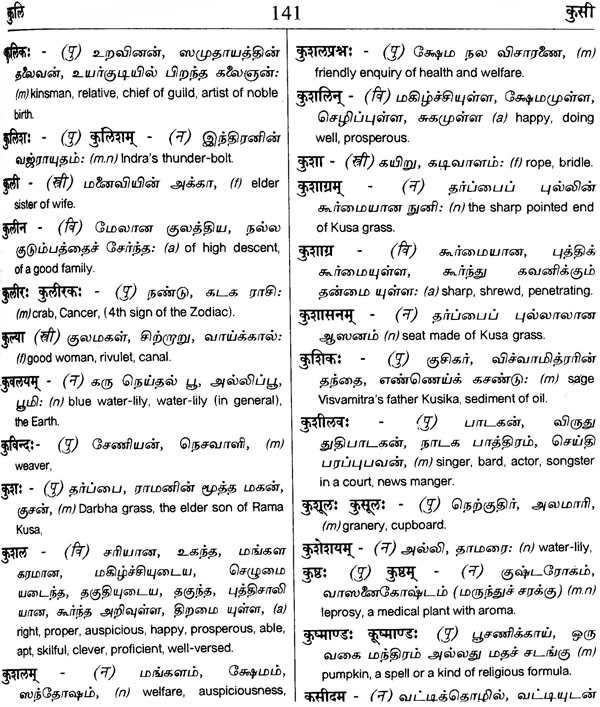 कुलि
141
कुसी
कुलिकः - (पु) உறவினன், ஸமுதாயத்தின்
தலைவன், உயர்குடியில் பிறந்த கலைஞன்:
(m) kinsman, relative, chief of guild, artist of noble
birth.
कुलिशः - (पु) कुलिशम् - (न) இந்திரனின்
வஜ்ராயுதம்: (m.n) Indra's thunder-bolt.
कुली - (स्त्री) மனைவியின் அக்கா, (f) elder
sister of wife.
कुलीन - (वि) மேலான குலத்திய, நல்ல
குடும்பத்தைச் சேர்ந்த: (a) of high descent,
of a good family.
कुलीरः कुलीरकः - (पु) நண்டு, கடக ராசி:
(m) crab, Cancer, (4th sign of the Zodiac).
कुल्या (स्त्री) குலமகள், சிற்றாறு, வாய்க்கால்:
(f) good woman, rivulet, canal.
कुवलयम् - (न) கரு நெய்தல் பூ, அல்லிப்பூ,
பூமி: (n) blue water-lily, water-lily (in general),
the Earth.
कुविन्दः- (पु) சேணியன், நெசவாளி, (m)
weaver,
कुशः - (पु) தர்ப்பை, ராமனின் மூத்த மகன்,
குசன், (m) Darbha grass, the elder son of Rama
Kusa,
कुशल - (वि) சரியான, உகந்த, மங்கள
கரமான, மகிழ்ச்சியுடைய, செழுமை
யடைந்த, தகுதியுடைய, தகுந்த, புத்திசாலி
யான, கூர்ந்த அறிவுள்ள, திறமை யுள்ள, (a)
right, proper, auspicious, happy, prosperous, able,
apt, skilful, clever, proficient, well-versed.
कुशलम् - (न) மங்களம், க்ஷேமம்,
ஸந்தோஷம், (n) welfare, auspiciousness,
कुशलप्रश्नः - (पु) க்ஷேம நல விசாரணை, (m)
friendly enquiry of health and welfare.
कुशलिन् - (वि) மகிழ்ச்சியுள்ள, க்ஷேமமுள்ள,
செழிப்புள்ள, சுகமுள்ள (a) happy, doing
well, prosperous.
कुशा - (स्त्री) கயிறு, கடிவாளம்: (f) rope, bridle.
कुशाग्रम् - (न) தர்ப்பைப் புல்லின்
கூர்மையான நுனி: (n) the sharp pointed end
of Kusa grass.
कुशाग्र - (वि) கூர்மையான, புத்திக்
கூர்மையுள்ள, கூர்ந்து கவனிக்கும்
தன்மை யுள்ள: (a) sharp, shrewd, penetrating.
कुशासनम् - (न) தர்ப்பைப் புல்லாலான
ஆஸனம் (n) seat made of Kusa grass.
कुशिकः - (पु) குசிகர், விச்வாமித்ரரின்
தந்தை, எண்ணெய்க் கசண்டு: (m) sage
Visvamitra's father Kusika, sediment of oil.
कुशीलवः - (पु) பாடகன், விருது
துதிபாடகன், நாடக பாத்திரம், செய்தி
பரப்புபவன், (m) singer, bard, actor, songster
in a court, news manger.
कुशूलः कुसूलः - (पु) நெற்குதிர், அலமாரி,
(m) granery, cupboard.
कुशेशयम् - (न) அல்லி, தாமரை: (n) water-lily,
कुष्ठः (पु) कुष्ठम् - (न) குஷ்டரோகம்,
வாஸனைகோஷ்டம் (மருந்துச் சரக்கு) (m.n)
leprosy, a medical plant with aroma.
कुष्माण्डः कूष्माण्डः (पु) பூசணிக்காய், ஒரு
வகை மந்திரம் அல்லது மதச் சடங்கு (m)
pumpkin, a spell or a kind of religious formula.
कुसीदम - (न) வட்டித்தொழில், வட்டியுடன்